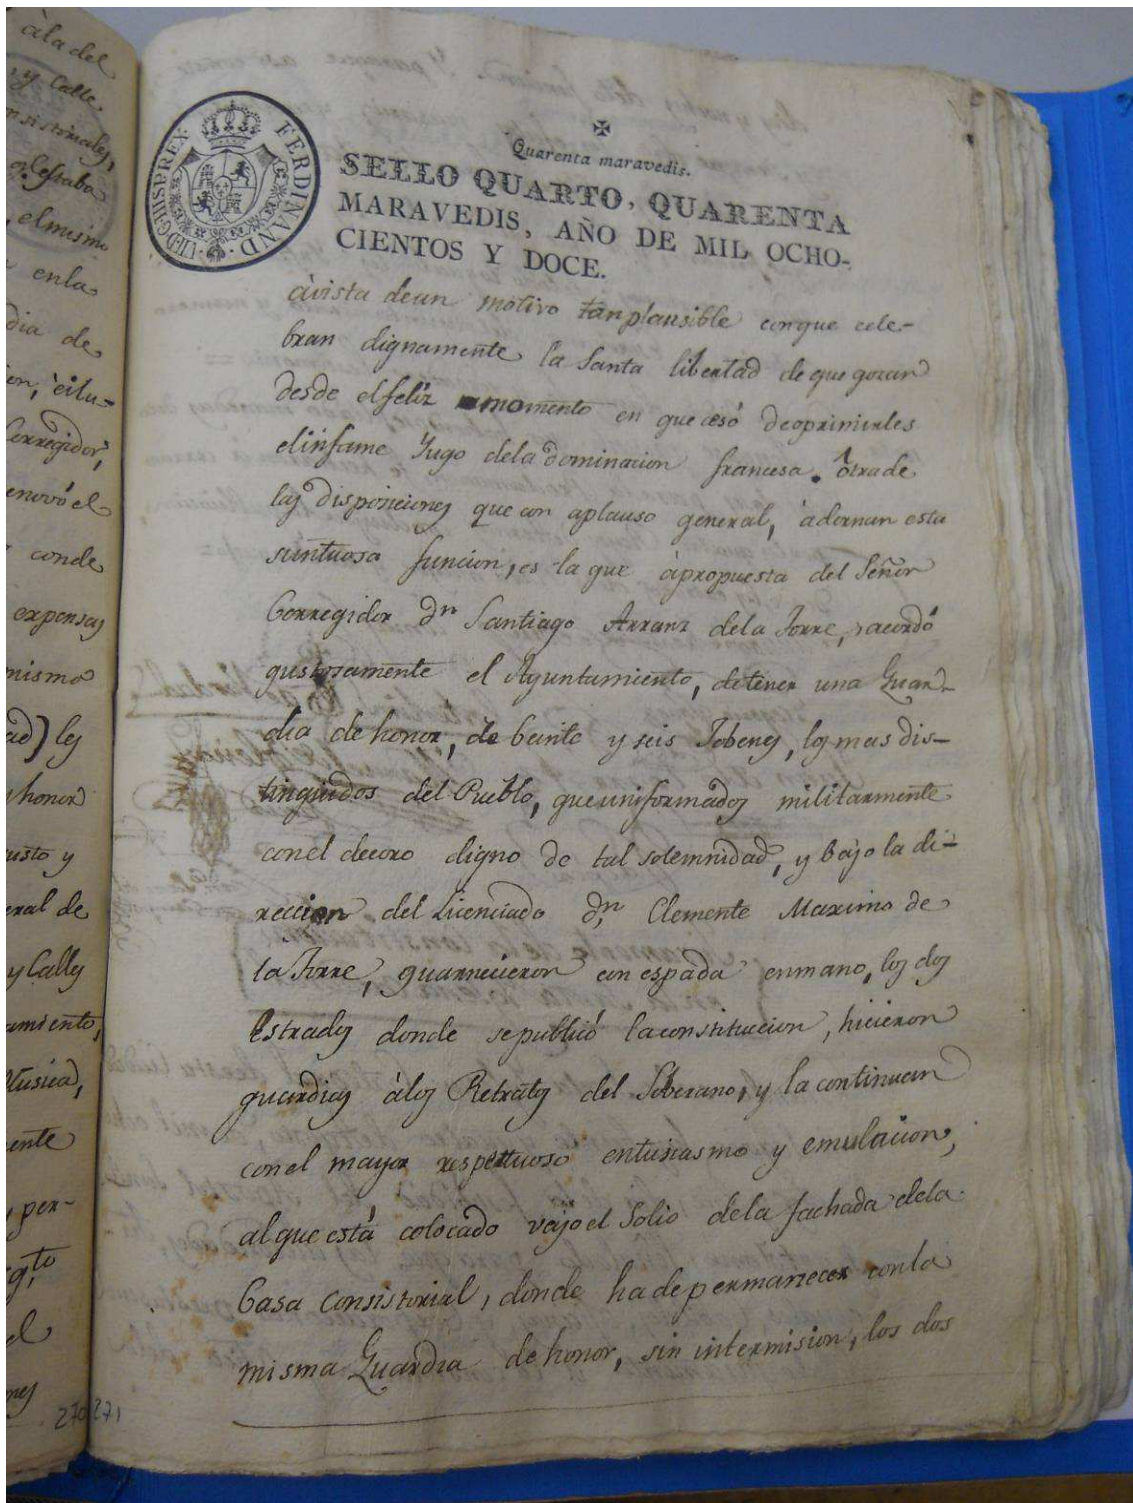 àla del
y Calle
nsistoriales,
estaba
, elmismo
enla
dia de
ion, èilu-
Corregidor,
enovó el
conde
expensas
mismo
ad) les
honor
usto y
eral de
y Calles
amiento,
Musica,
ente
per-
g.to
el
nes
270
FERDINAND·VII·D·G·HISP·REX·
✠
Quarenta maravedis.
SELLO QUARTO, QUARENTA
MARAVEDIS, AÑO DE MIL OCHO-
CIENTOS Y DOCE.
àvista deun motivo tanplausible conque cele-
bran dignamente la Santa libertad de que gozan
desde elfeliz momento en que cesó deoprimirles
elinfame Yugo dela dominacion francesa. Otra de
las disposiciones que con aplauso general, adornan esta
suntuosa funcion, es la que àpropuesta del Señor
Corregidor dn Santiago Arranz dela Torre, acordó
gustosamente el Ayuntamiento, detener una Guar-
dia de honor, de beinte y seis Jobenes, los mas dis-
tinguidos del Pueblo, queuniformados militarmente
conel decoro digno de tal solemnidad, y bajo la di-
reccion del Licenciado dn Clemente Maximo de
la Torre, guarnecieron con espada enmano, los dos
Estrados donde sepublicó laconstitucion, hicieron
guardias àlos Retratos del Soberano, y la continuan
conel mayor respetuoso entusiasmo y emulacion,
alque está colocado vajoel Solio dela fachada dela
Casa Consistorial, donde hadepermanecer conla
misma Guardia de honor, sin intermision, los dos
271